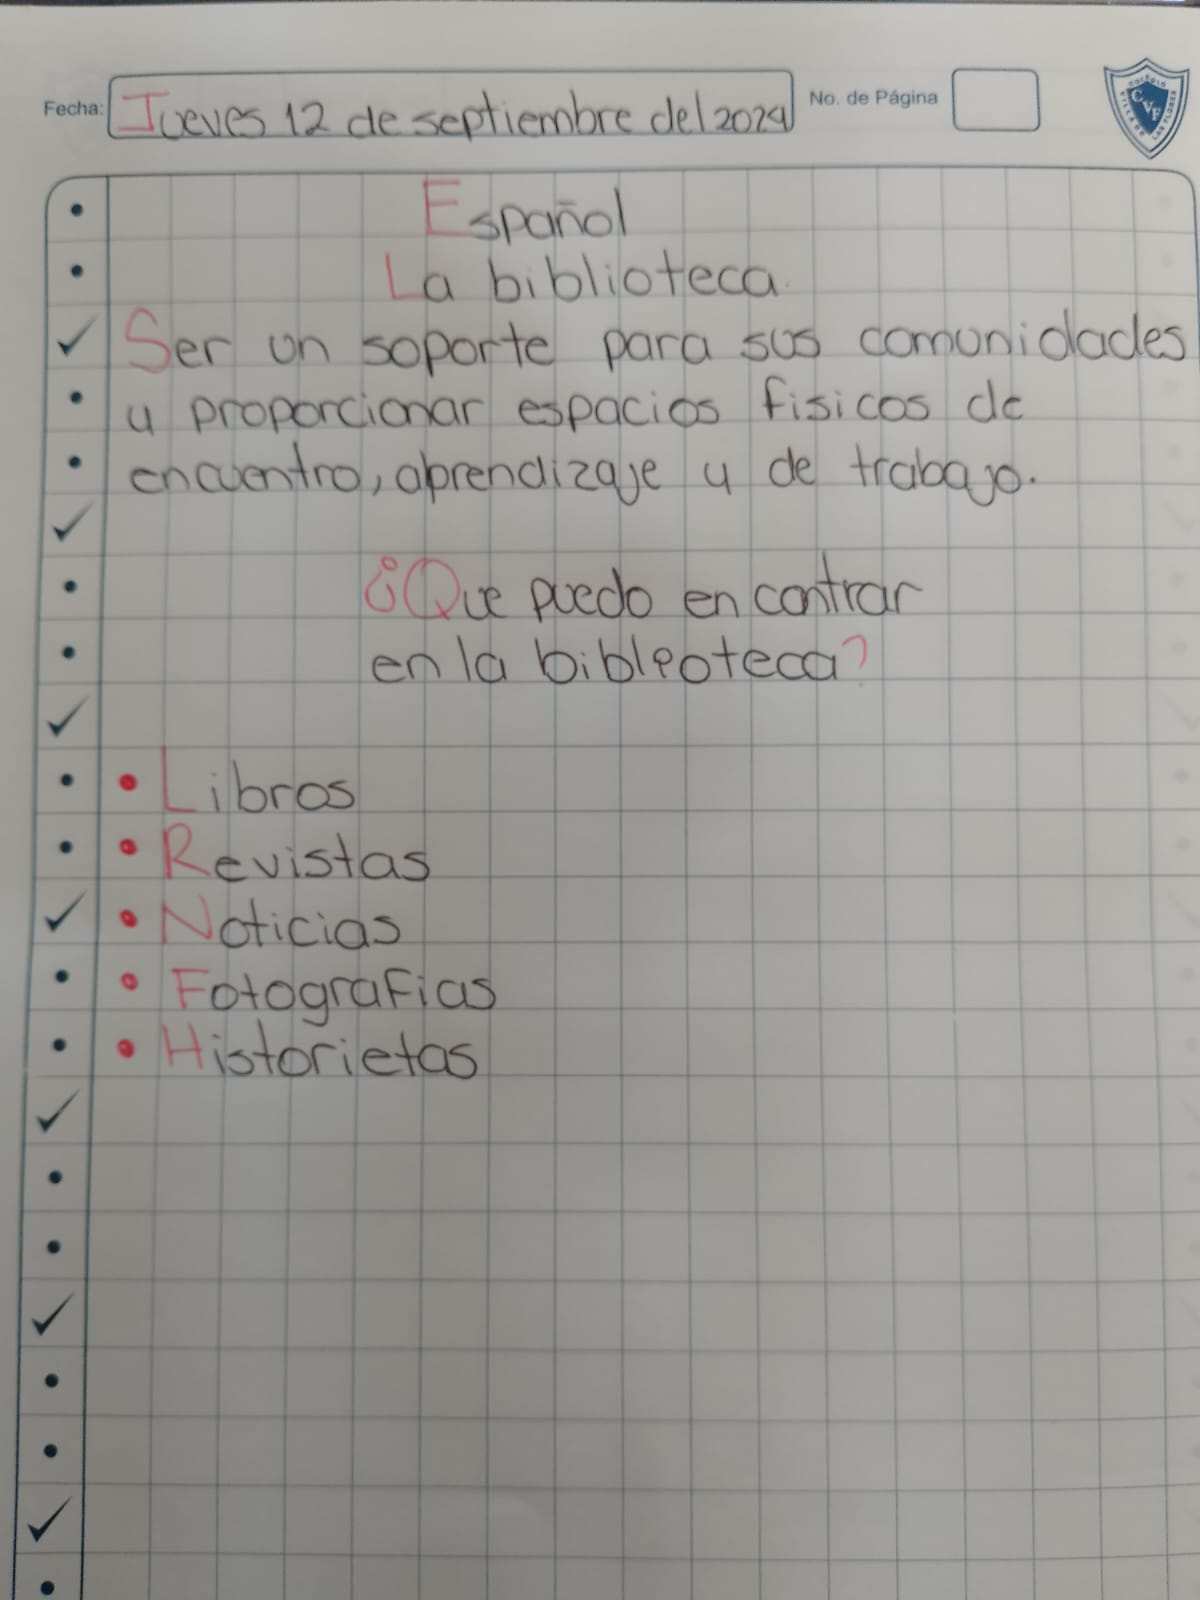 Fecha: Jueves 12 de septiembre del 2024 No. de Página
COLEGIO VILLA DE LAS FLORES
CVF
Español
La biblioteca.
Ser un soporte para sus comunidades
y proporcionar espacios fisicos de
encuentro, aprendizaje y de trabajo.
¿Que puedo en contrar
en la biblioteca?
• Libros
• Revistas
• Noticias
• Fotografias
• Historietas